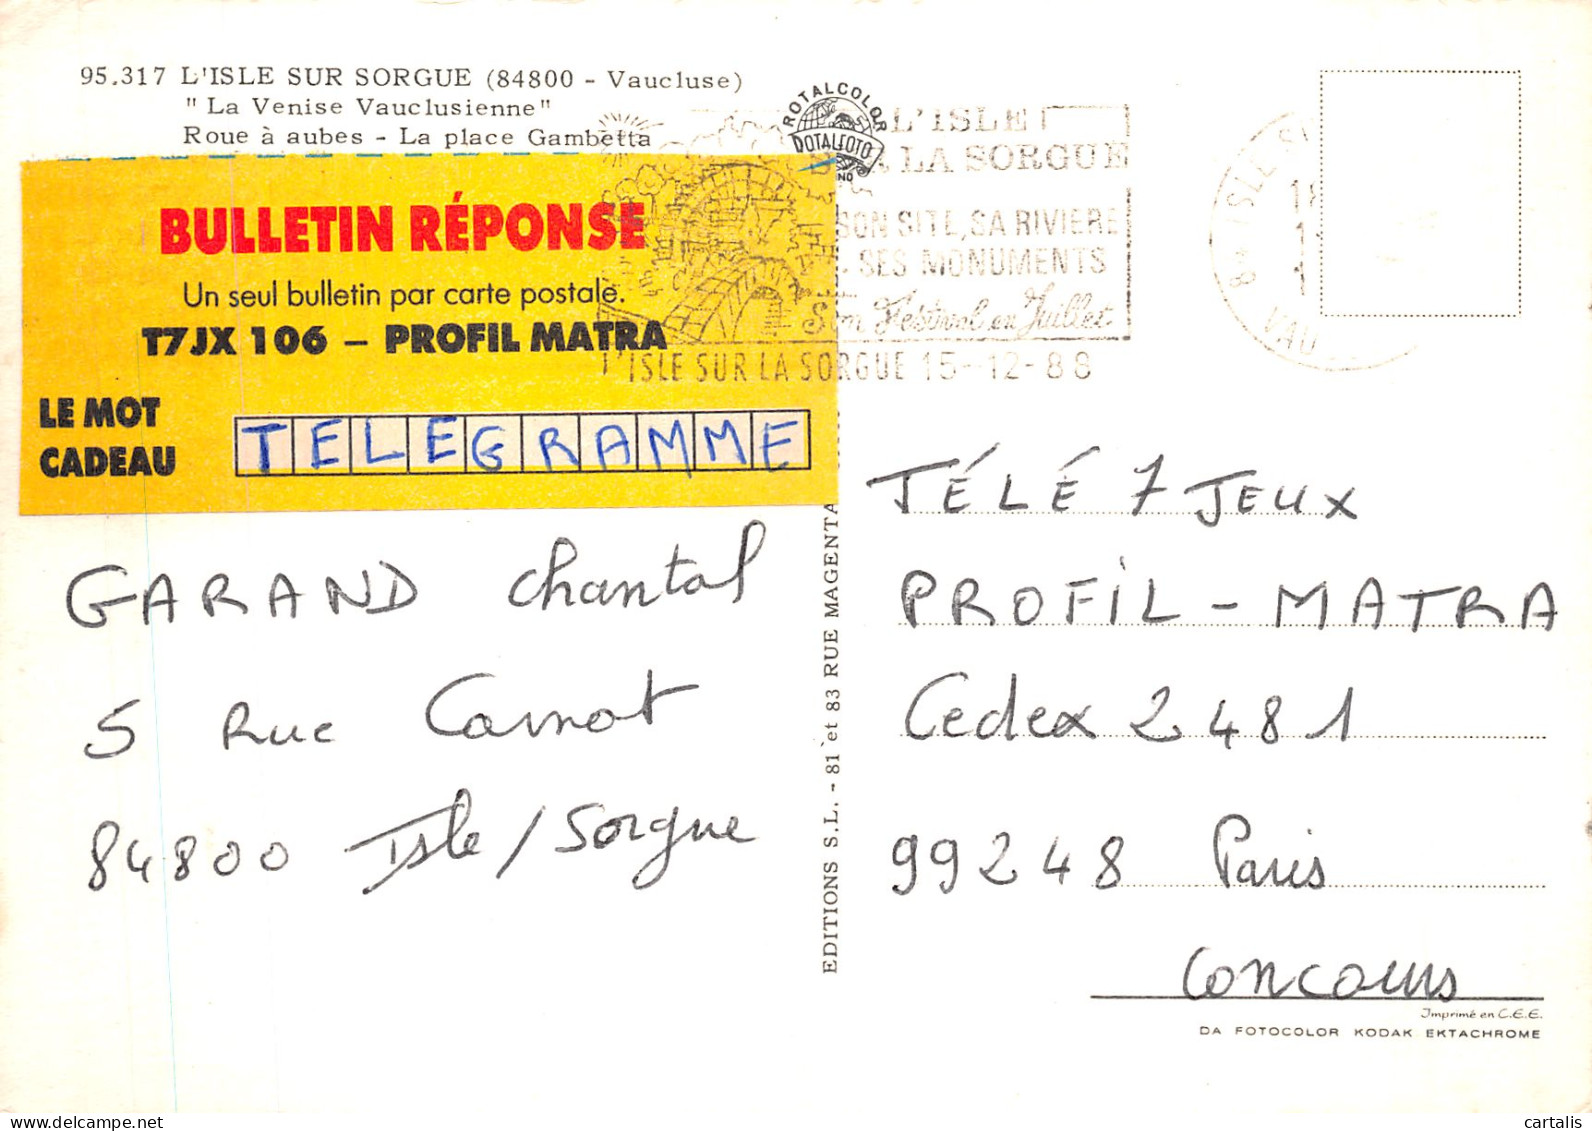 95.317 L'ISLE SUR SORGUE (84800 - Vaucluse)
" La Venise Vauclusienne"
Roue à aubes - La place Gambetta
ROTALCOLOR
ROTALFOTO
L'ISLE
SUR LA SORGUE
SON SITE, SA RIVIERE
SES MONUMENTS
Son Festival en Juillet
L'ISLE SUR LA SORGUE 15-12-88
BULLETIN RÉPONSE
Un seul bulletin par carte postale.
T7JX 106 – PROFIL MATRA
LE MOT
CADEAU
TELEGRAMME
GARAND Chantal
5 Rue Carnot
84800 Isle / Sorgue
EDITIONS S.L. - 81 et 83 RUE MAGENTA
TÉLÉ 7 JEUX
PROFIL - MATRA
Cedex 2481
99248 Paris
Concours
Imprimé en C.E.E.
DA FOTOCOLOR KODAK EKTACHROME
cartalis
www.delcampe.net